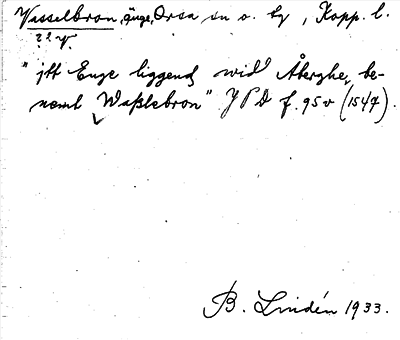 Vasselbron, änge, Orsa sn o. by, Kopp. l.
"jtt Enge liggend widh Åberghe, be-
nemt Waßlebron" JPD f. 95 v (1547).
B. Lindén 1933.